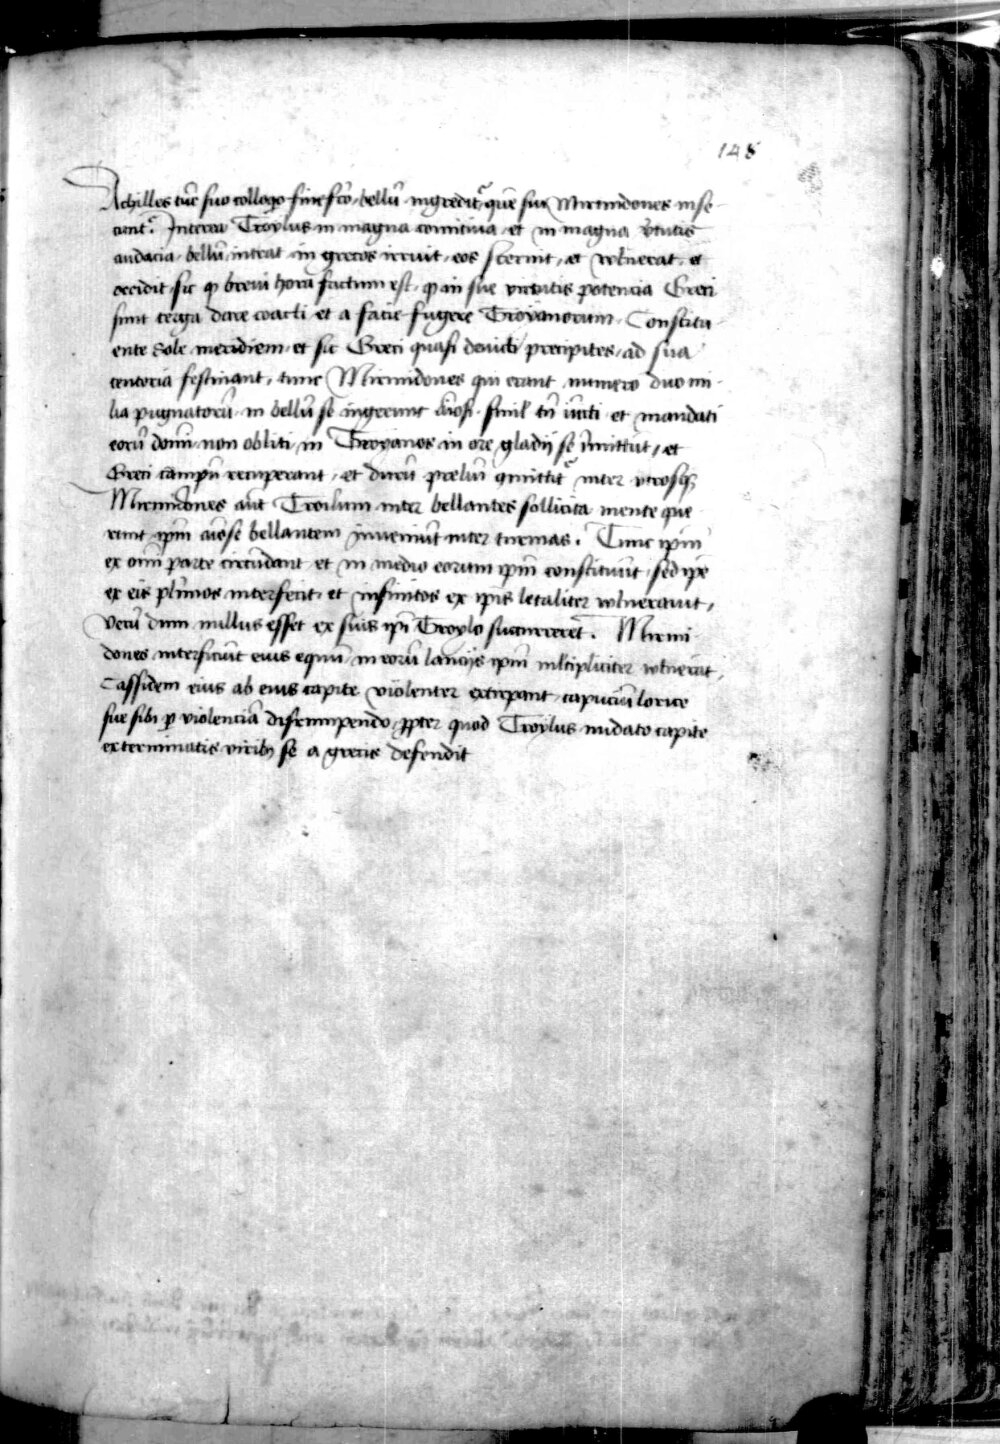 148
Achilles tūc suo colloqo finesco bellū ingredit̄ quē sui Mirmidones inse
cunt. Interea Troylus in magna comitiua et in magna v̄tutis
audacia bellū intrat in grecos irruit, eos sternit, et vulnerat, et
occidit, sic ꝙ breui hora factum est, ꝙ in sue virtutis potencia Greci
sunt terga dare coacti et a facie fugere Troyanorum. Constitu
ente Sole meridiem et sic Greci quasi deuicti precipites ad sua
tentoria festinant, tunc Mirmidones qui erant numero duo mi
lia pugnatorū in bellū se ingerunt siml̄ tn̄ vniti et mandati
eorū domī non obliti in Troyanos in ore gladij se īmittūt, et
Greci campū recuperant, et durū preliū 9mittit̄ inter vtrosqȝ
Mirmidones aūt Troilum inter bellantes sollicita mente que
runt ip̄m bellantem inueniūt inter turmas. Tunc ip̄m
ex om̄i parte circūdant et in medio eorum ip̄m constituūt, sed ip̄e
ex eis pl̄imos interfecit et infinitos ex ip̄is letaliter vulnerauit,
Verū dum nullus esset ex suis ip̄i Troylo succurreret. Mirmi
dones interficiūt eius equū in eorū lancijs ip̄m ml̄tipliciter vulnerāt,
Cassidem eius ab eius capite violenter extirpant capuciū lorice
sue sibi ꝑ violenciā disrumpendo, ꝓpter quod Troylus nudato capite
exterminatis viribȝ se a grecis defendit